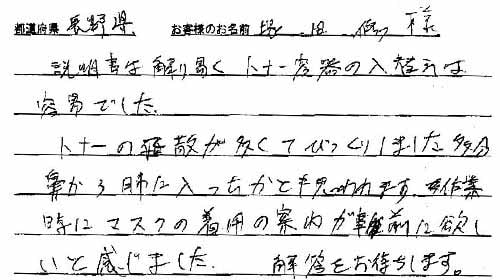 都道府県 長野県 お客様のお名前 様
説明書は解り易く トナー容器の入替えは
容易でした。
トナーの飛散が多くてびっくりしました 多分
鼻から肺に入ったかと思われます 作業
時にマスクの着用の案内が事前に欲し
いと感じました。 解答をお待ちします。